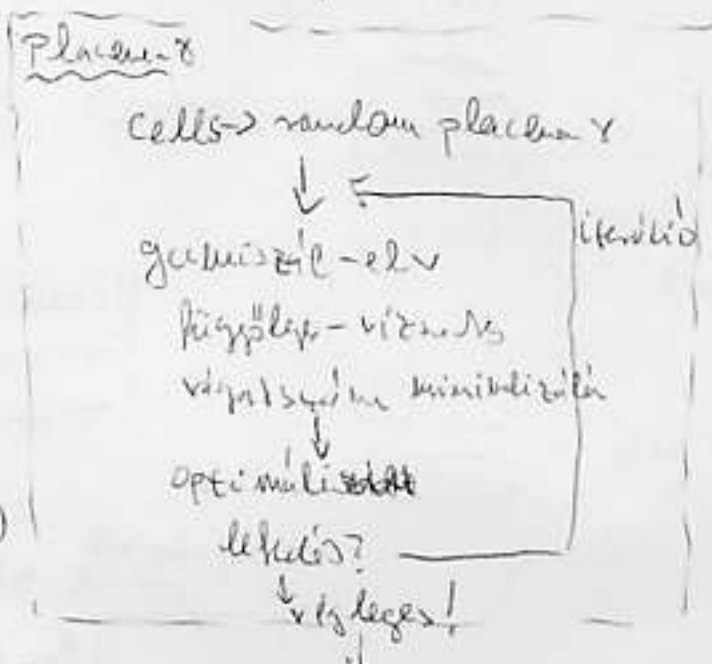 Placement
Cells -> random placement
iteráció
gumiszál-elv
függőleges - vízszintes
vágatszám minimalizálás
optimális
lefedés?
végleges!